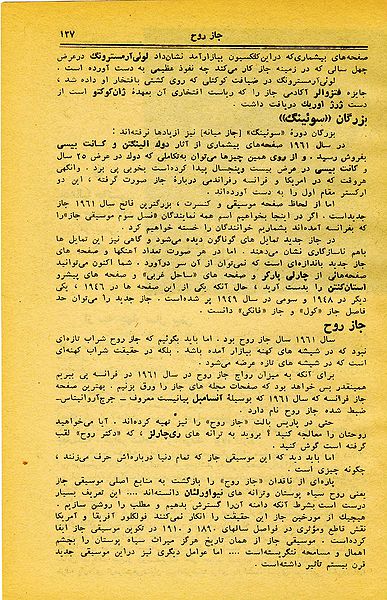 جاز روح
۱۲۷
صفحه‌های بیشماری که در این کلکسیون ببازار آمد نشان داد لوئی آرمسترونگ در عرض
چهل سالی که در زمینه جاز کار می‌کند چه نفوذ عظیمی به دست آورده است .
لوئی آرمسترونگ در ضیافت کوکتلی که روی کشتی بافتخار او داده شد ،
جایزه فنزوالر آکادمی جاز را که ریاست افتخاری آن بعهدهٔ ژان کوکتو است از
دست ژرژ اوریک دریافت داشت .
بزرگان «سوئینگ»
بزرگان دورهٔ «سوئینگ» (جاز میانه) نیز از یادها نرفته‌اند :
در سال ۱۹۶۱ صفحه‌های بیشماری از آثار دوك الینگتن و کانت بیسی
بفروش رسید . و از روی همین چیزها می‌توان به تکاملی که دوك در عرض ۲۵ سال
و کانت بیسی در عرض بیست و پنجسال پیدا کرده‌است بخوبی پی برد . وانگهی
هروقت که در آمریکا و فرانسه رفراندمی دربارهٔ جاز صورت گرفته ، این دو
ارکستر مقام اول را به دست آورده‌اند .
اما از لحاظ صفحه موسیقی و کنسرت ، بزرگترین فاتح سال ۱۹۶۱ جاز
جدید است . اگر در اینجا بخواهیم اسم همه نمایندگان «نسل سوم موسیقی جاز» را
که بفرانسه آمده‌اند بشماریم خوانندگان را خسته خواهیم کرد .
در جاز جدید تمایل های گوناگون دیده می‌شود و گاهی نیز این تمایل ها
باهم ناسازگاری نشان می‌دهند . اما در هر صورت تعداد آهنگها و صفحه های
جاز جدید باندازه‌ای است که نمی‌توان از آن سر درآورد . شما اکنون می‌توانید
صفحه‌هائی از چارلی پارکر و صفحه های «ساحل غربی» و صفحه های پیشرو
استان کنتن را بدست آرید ، حال آنکه یکی از این صفحه ها در ۱۹۴۶ ، یکی
دیگر در ۱۹۴۸ و سومی در سال ۱۹۴۹ پر شده‌است . جاز جدید را می‌توان حد
فاصل جاز «کول» و جاز «فانکی» دانست .
جاز روح
سال ۱۹۶۱ سال جاز روح بود . اما باید بگوئیم که جاز روح شراب تازه‌ای
نبود که در شیشه های کهنه ببازار آمده باشد . بلکه در حقیقت شراب کهنه‌ای
است که در شیشه های تازه عرضه می‌شود .
برای آنکه به میزان رواج جاز روح در سال ۱۹۶۱ در فرانسه پی ببریم
همینقدر بس خواهد بود که صفحات مجله های جاز را ورق بزنیم . بهترین صفحه
جاز فرانسه که سال ۱۹۶۱ که بوسیلهٔ آنسامبل پیانیست معروف – جرج آروانیتاس-
ضبط شده جاز روح نام دارد .
حتی در پاریس بالت «جاز روح» را نیز تهیه کرده‌اند . آیا می‌خواهید
روحتان را معالجه کنید ؟ بروید به ترانه های ری چارلز ، که «دکتر روح» لقب
گرفته است گوش کنید .
اما باید دید که این موسیقی جاز که تمام دنیا درباره‌اش حرف می‌زنند ،
چگونه چیزی است .
پاره‌ای از ناقدان «جاز روح» را بازگشت به منابع اصلی موسیقی جاز
یعنی روح سیاه پوستان و ترانه های نیواورلئان دانسته‌اند .... این تعریف بسیار
درست است بشرط آنکه دامنه آن را گسترش بدهیم و مطلب را روشن سازیم .
هیچیك از مورخین جاز این حقیقت را انکار نمی‌کنند فولکلور آفریقا و آمریکا
نقش قاطع و مؤثری در فواصل سالهای ۱۸۹۰ و ۱۹۱۰ در تکوین موسیقی جاز ایفا
کرده است . موسیقی جاز از همان تاریخ هرگز میراث سیاه پوستان را بچشم
اهمال و مسامحه ننگریسته است ... اما عوامل دیگری نیز در این موسیقی جدید
قرن بیستم تأثیر داشته‌است .